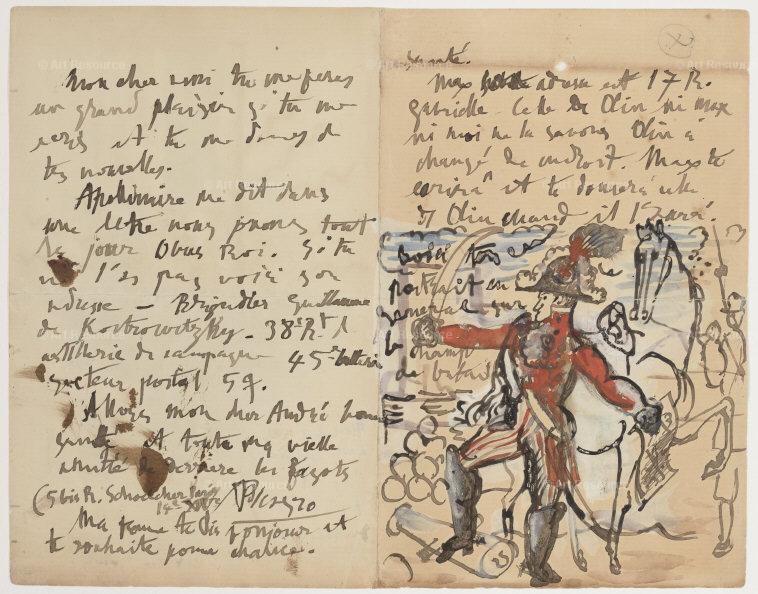 Mon cher ami tu me feras
un grand plaisir si tu me
ecris et tu me donnes de
tes nouvelles.
Apollinaire me dit dans
une letre nous prenons tout
le jour Obus Roi. Si tu
ne l'as pas voici son
adresse – Brigadier Guillaume
de Kostrowitzky - 38e Rt d
artillerie de campagne 45e batterie
secteur postal 59.
Allons mon cher André bonne
santé et toute ma vieille
amitié de derriere les fagots
Picasso
(5 bis R. Schoelcher Paris
14e XIVe
Ma femme te dit bonjour et
te souhaite bonne chance.
santé.
Max adresse est 17 R.
Gabrielle. Celle de Olin ni Max
ni moi ne la savons Olin a
changé de endroit. Max te
ecrira et te donnera celle
de Olin quand il l'aura.
Voici ton
portrait en
General sur
le
champ
de batail
© Art Resource